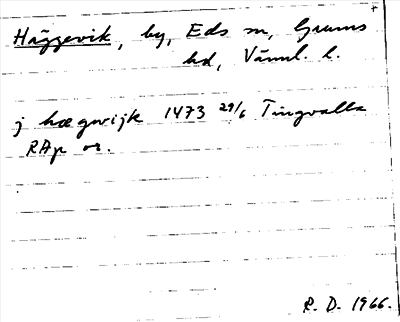 Häggevik, by, Eds sn, Grums
hd, Värml. l.
j hægwijk 1473 29/6 Tingvalla
RAp or.
R. D. 1966.